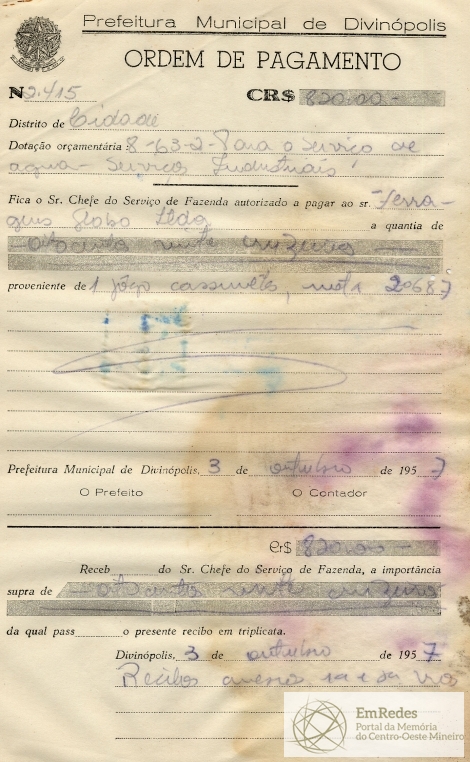 Prefeitura Municipal de Divinópolis
ORDEM DE PAGAMENTO
Nº 2.415 CR$ 820.00-
Distrito de Cidade
Dotação orçamentária: 8-63-2-Para o serviço de
agua - Serviços Industriais
Fica o Sr. Chefe do Serviço de Fazenda autorizado a pagar ao sr. Ferra-
gens Globo Ltda a quantia de
oitocentos vinte cruzeiros
proveniente de 1 jôgo nota 20687
Prefeitura Municipal de Divinópolis, 3 de outubro de 1957
O Prefeito O Contador
Cr$ 820.00-
Receb do Sr. Chefe do Serviço de Fazenda, a importância
supra de oitocentos vinte cruzeiros
da qual pass o presente recibo em triplicata.
Divinópolis, 3 de outubro de 1957
Recibos anexo 1a e 2a vias
EmRedes
Portal da Memória
do Centro-Oeste Mineiro